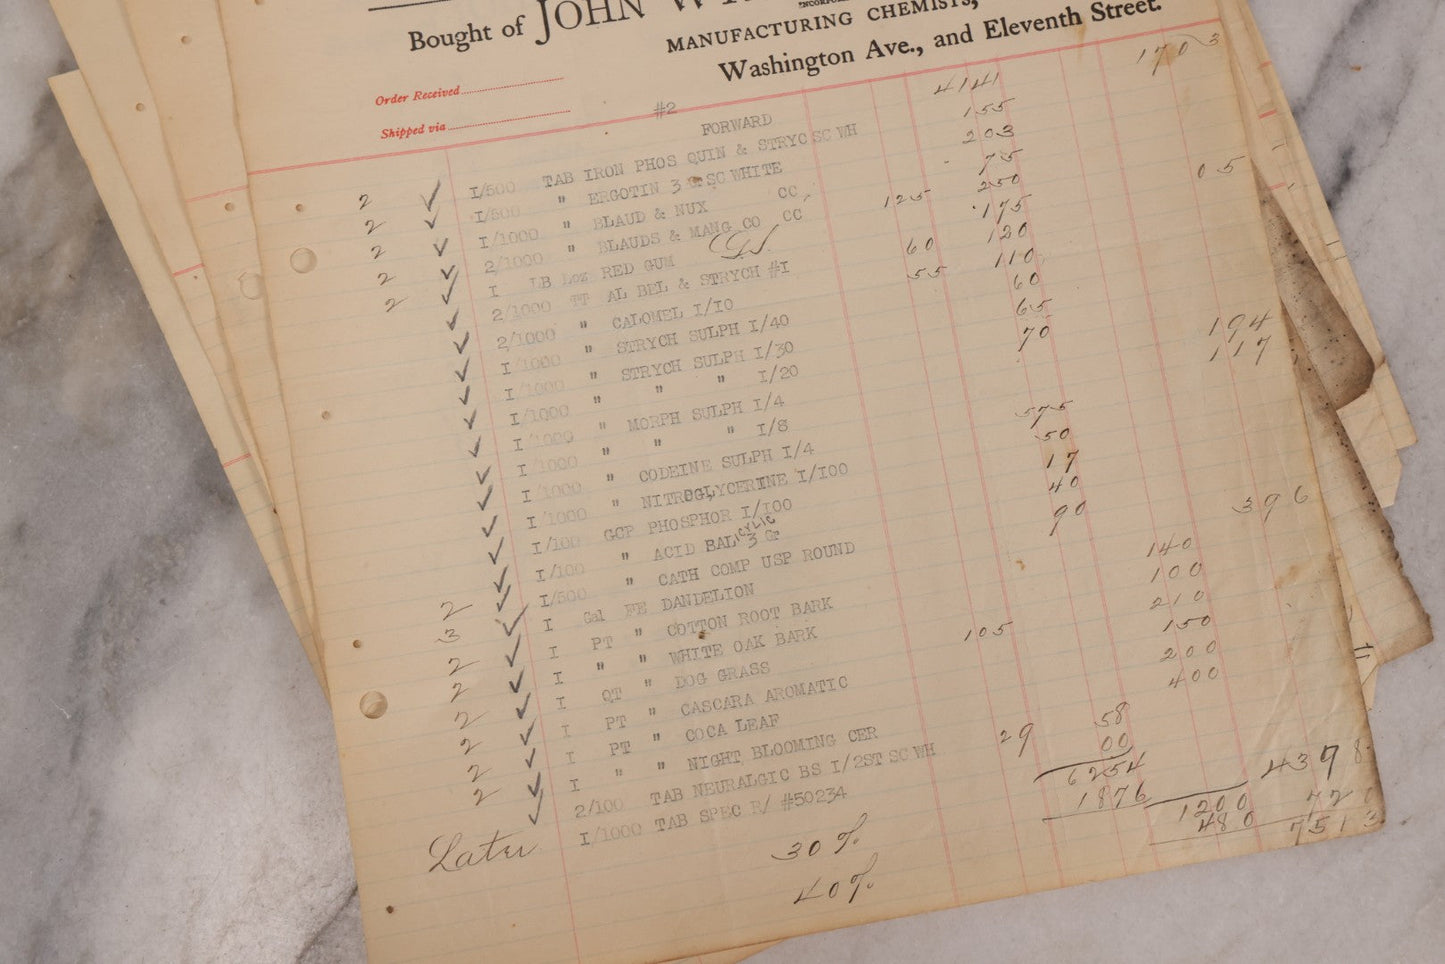 Bought of JOHN WY
INCORPOR
MANUFACTURING CHEMISTS,
Washington Ave., and Eleventh Street.
Order Received
Shipped via
#2
FORWARD 4141 1703
2 ✓ I/500 TAB IRON PHOS QUIN & STRYC SC WH 155
2 ✓ I/500 " ERGOTIN 3 Gr SC WHITE 203
2 ✓ I/1000 " BLAUD & NUX CC 75
2 ✓ 2/1000 " BLAUDS & MANG CO CC 125 250
2 ✓ I LB Loz RED GUM 175 05
✓ 2/1000 TT AL BEL & STRYCH #I 60 120
✓ 2/1000 " CALOMEL I/IO 55 110
✓ I/1000 " STRYCH SULPH I/40 60
✓ I/1000 " STRYCH SULPH I/30 65
✓ I/1000 " " " I/20 70
✓ I/1000 " MORPH SULPH I/4 194
✓ I/1000 " " " I/8 117
✓ I/1000 " CODEINE SULPH I/4 575
✓ I/1000 " NITROGLYCERINE I/100 50
✓ I/100 GCP PHOSPHOR I/100 17
✓ I/100 " ACID SALICYLIC 3 Gr 40
2 ✓ I/500 " CATH COMP USP ROUND 90
3 ✓ I Gal FE DANDELION 396
2 ✓ I PT " COTTON ROOT BARK 140
2 ✓ I " " WHITE OAK BARK 100
2 ✓ I QT " DOG GRASS 210
2 ✓ I PT " CASCARA AROMATIC 105 150
2 ✓ I PT " COCA LEAF 200
2 ✓ I " " NIGHT BLOOMING CER 400
✓ 2/100 TAB NEURALGIC BS I/2ST SC WH 29 58
Later I/1000 TAB SPEC R/ #50234 00
6254 4398
1876 1200 720
30% 480 7513
40%